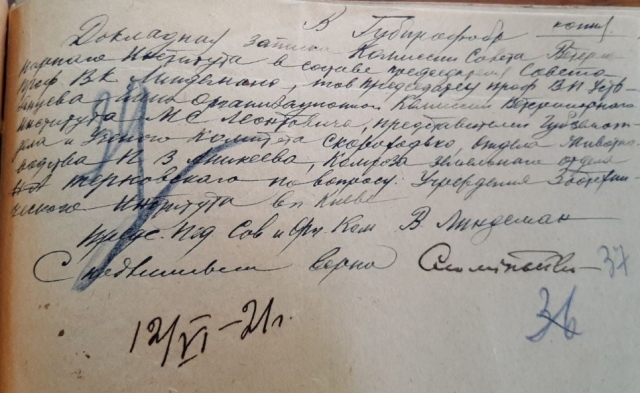 В Губпрофобр копия
Докладная записка Комиссии Совета Ветери-
нарного Института в составе председателя Совета
проф В К Линдемана, тов председателя проф В П Устьянцева
Организационной Комиссии Ветеринарного
института М С Леонтовича, представителей Губземот-
дела и Ученого Комитета Скороходько, отдела Животно-
водства И В Аникеева, Земельного отдела
Терновского по вопросу: Учреждения Зоотехни-
ческого Института в г. Киеве
предс. Под Сов и Орг. Ком В. Линдеман
С подлинным верно
37
36
12/VI – 21 г.